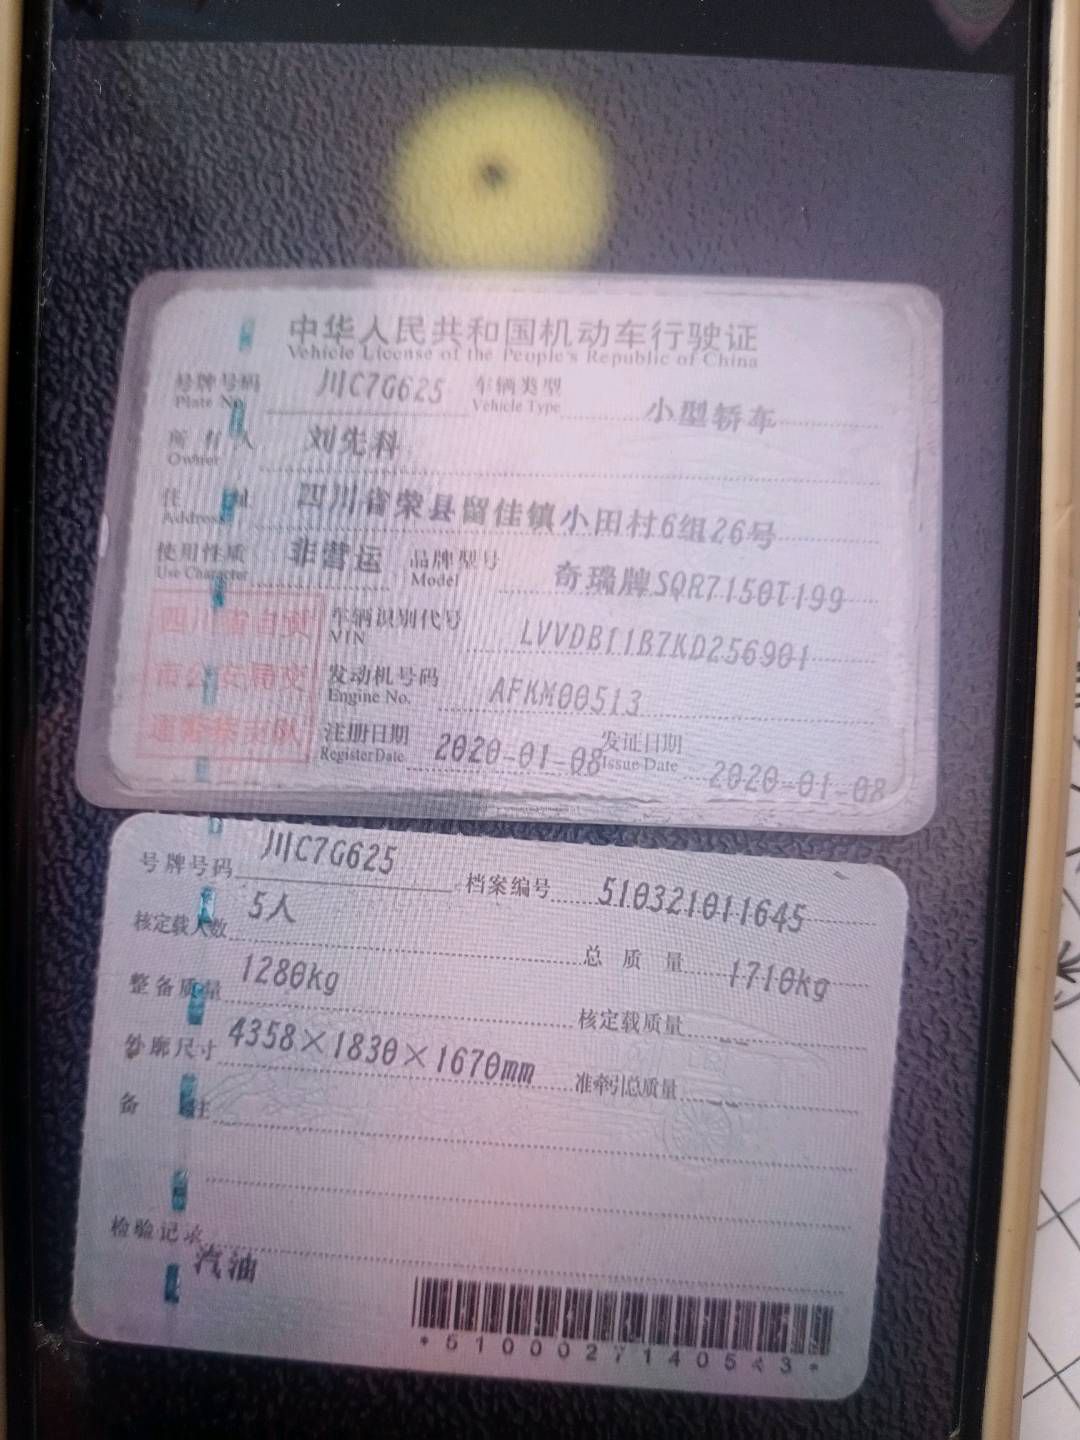 中华人民共和国机动车行驶证
Vehicle License of the People's Republic of China
号牌号码 川C7G625 车辆类型 小型轿车
Plate No. Vehicle Type
所有人 刘先科
Owner
住址 四川省荣县留佳镇小田村6组26号
Address
使用性质 非营运 品牌型号 奇瑞牌SQR7150T199
Use Character Model
四川省自贡
市公安局交
通警察支队
车辆识别代号 LVVDB11B7KD256901
VIN
发动机号码 AFKM00513
Engine No.
注册日期 2020-01-08 发证日期 2020-01-08
Register Date Issue Date
号牌号码 川C7G625 档案编号 510321011645
核定载人数 5人 总质量 1710kg
整备质量 1280kg 核定载质量
外廓尺寸 4358×1830×1670mm 准牵引总质量
备注
检验记录
汽油